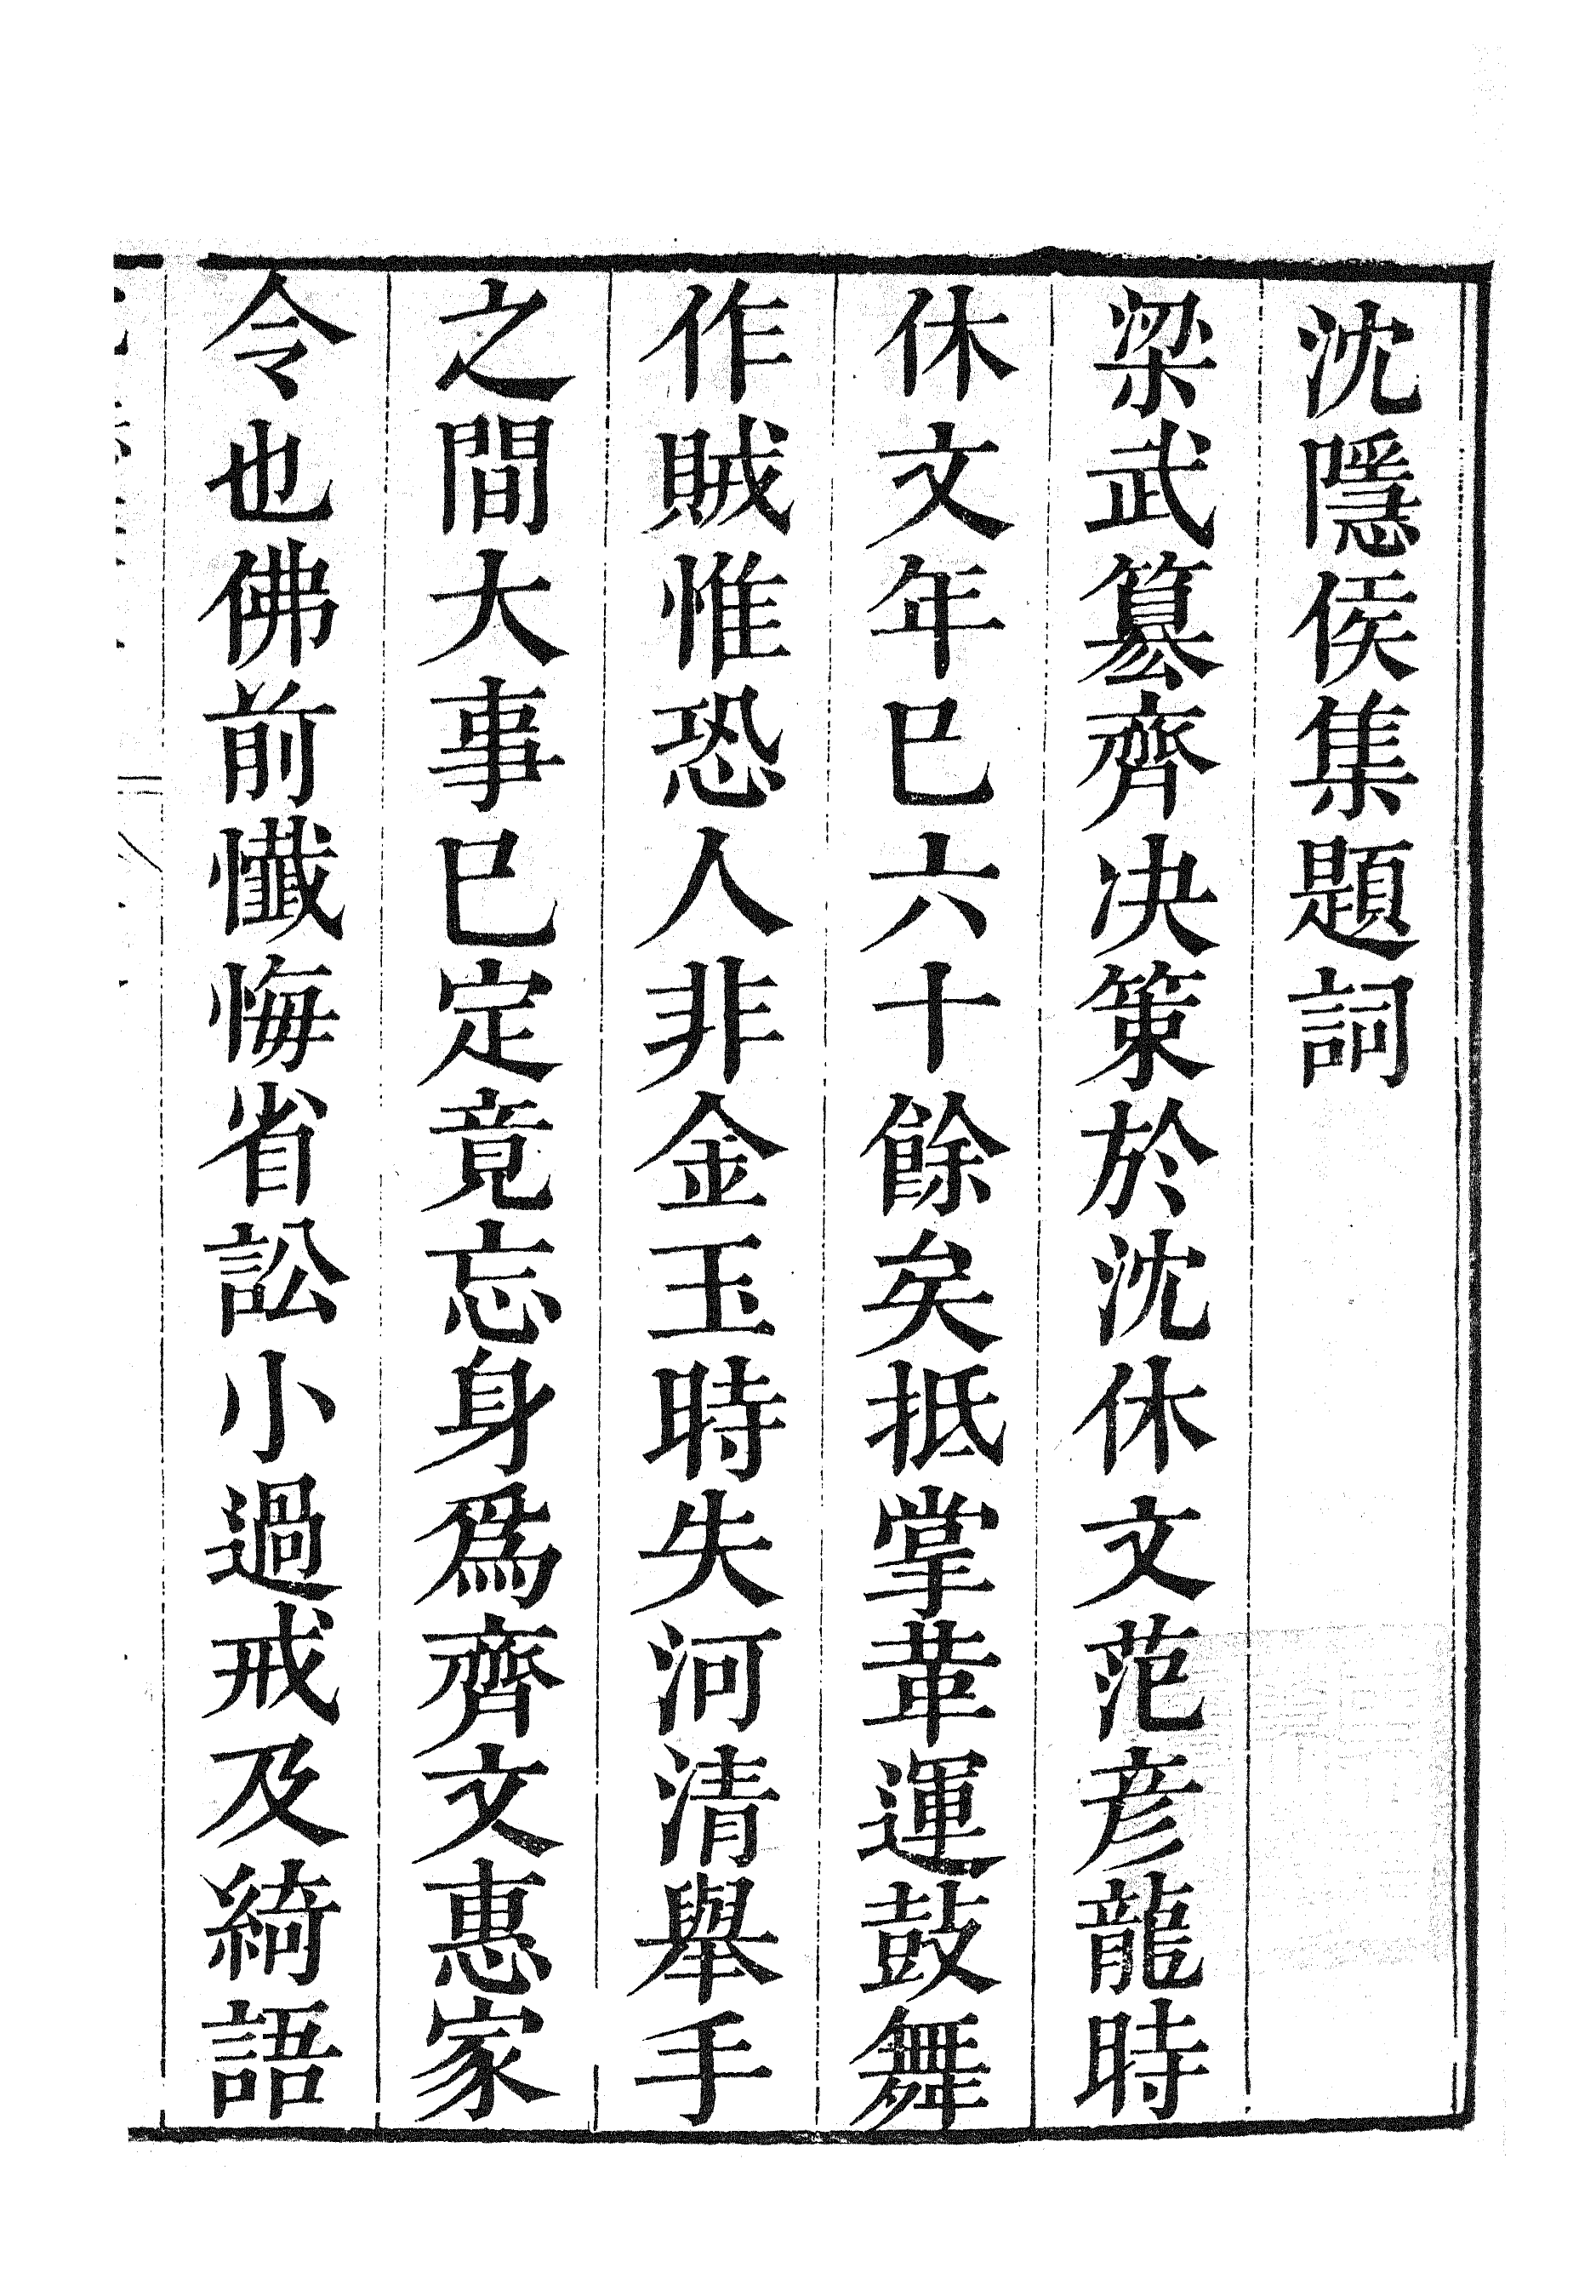 沈隱侯集題詞
梁武篡齊决策於沈休文范彦龍時
休文年巳六十餘矣抵掌革運鼓舞
作賊惟恐人非金玉時失河清舉手
之間大事巳定竟忘身爲齊文惠家
令也佛前懺悔省訟小過戒及綺語